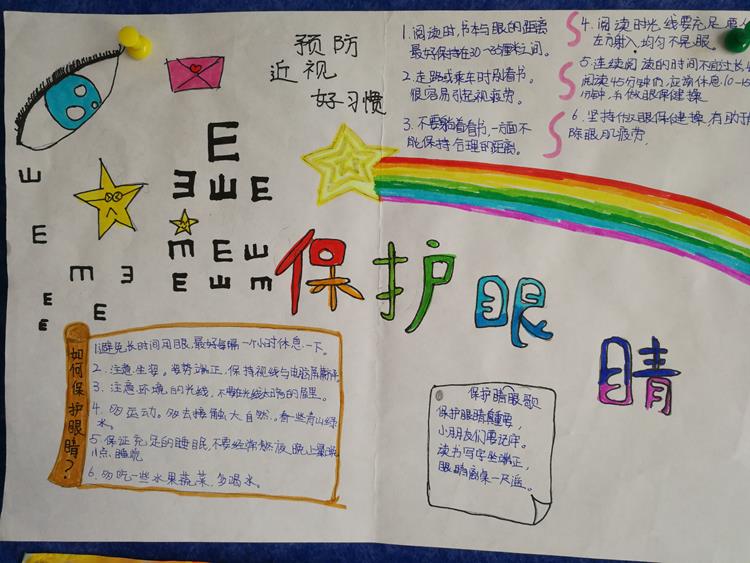 预防
近视
好习惯
1. 阅读时,书本与眼的距离
最好保持在30~35厘米之间。
2. 走路或乘车时别看书。
很容易引起视疲劳。
3. 不要躺着看书,一方面不
能保持合理的距离。
4. 阅读时光线要充足
左方射入,均匀不晃眼。
5. 连续阅读的时间不能过长
阅读45分钟后,应端休息10-15
分钟,并做眼保健操
6. 坚持做眼保健操,有助于
除眼肌疲劳.
E
E E E
E E E
E E E
E
E
E E
E
E
E
保护眼睛
如何保护眼睛?
1.避免长时间用眼.最好每隔一个小时休息一下。
2. 注意坐姿。姿势端正,保持视线与电脑屏幕
3. 注意环境的光线,不要在光线太暗的屋里。
4. 多运动。多去接触大自然.看一些青山绿
水。
5 保证充足的睡眠,不要经常熬夜.晚上最晚
11点.睡觉
6. 多吃一些水果蔬菜,多喝水。
保护睛眼歌
保护眼睛重要,
小朋友们要记牢。
读书写字坐端正,
眼睛离桌一尺远。